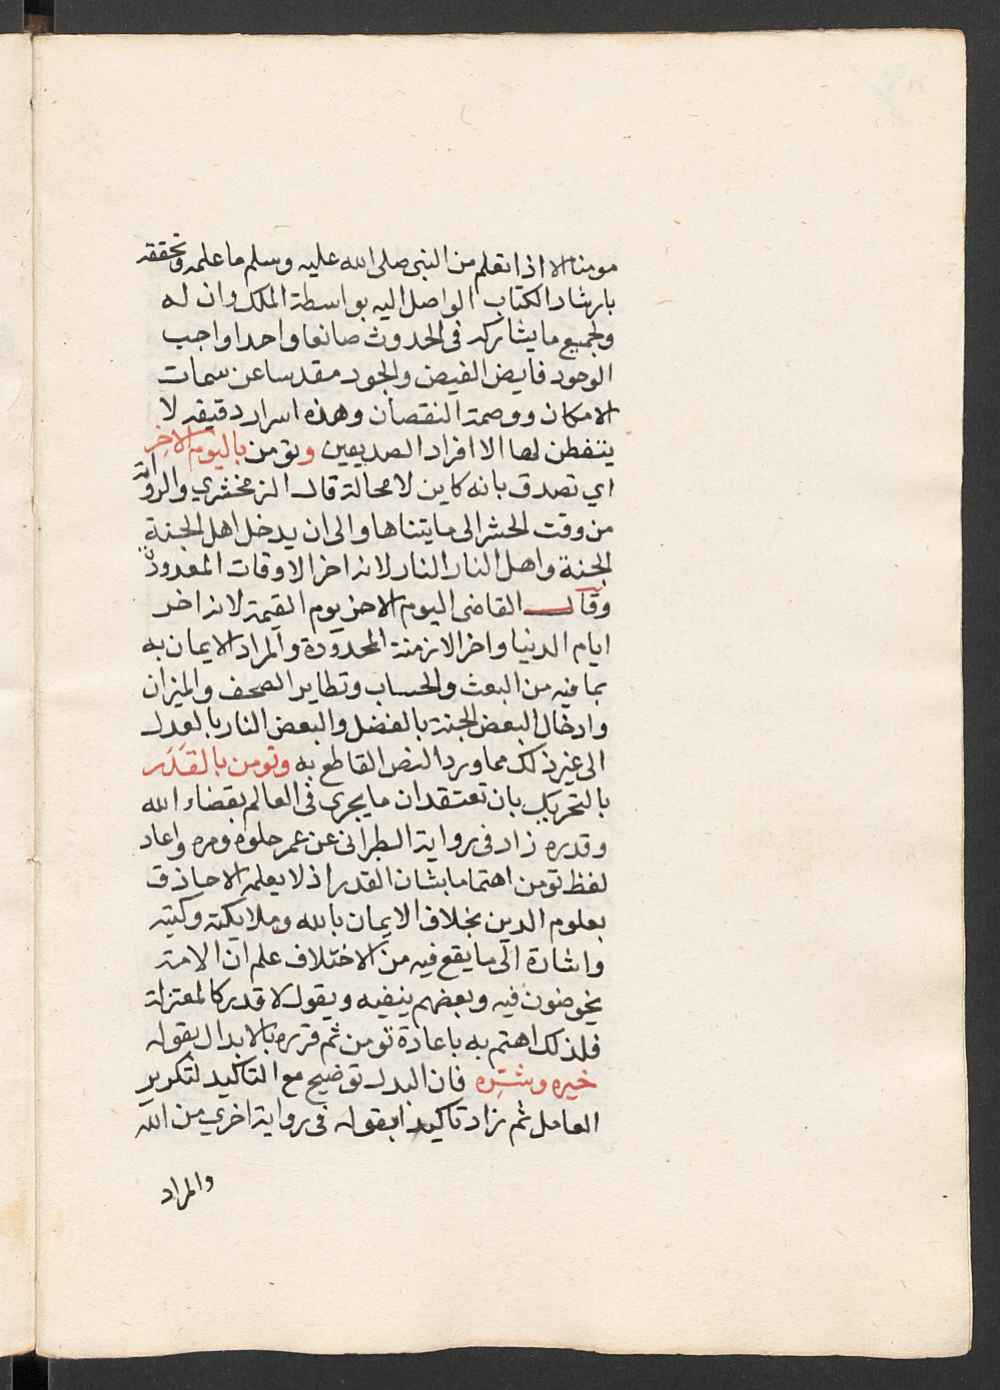 مومنا الا اذا تعلم من النبى صلى الله عليه وسلم ما علمه وتحققه
بارشاد الكتاب الواصل اليه بواسطة الملك وان له
ولجميع ما يشاركه فى الحدوث صانعا واحدا واجب
الوجود فايض الفيض والجود مقدسا عن سمات
الامكان ووصمة النقصان وهذه اسرار دقيقه لا
يتفطن لها الا افراد الصديقين وتؤمن باليوم الاخر
اي تصدق بانه كاين لا محالة قال الزمخشري والمراد به
من وقت الحشر الى ما يتناها والى ان يدخل اهل الجنة
الجنة واهل النار النار لانه اخر الاوقات المعدودة
وقال القاضى اليوم الاخر يوم القيمة لانه اخر
ايام الدنيا واخر الازمنة المحدودة والمراد الايمان به
بما فيه من البعث والحساب وتطاير الصحف والميزان
وادخال البعض الجنة بالفضل والبعض النار بالعدل
الى غير ذلك مما ورد النص القاطع به وتومن بالقدر
بالتحريك بان تعتقد ان ما يجرى فى العالم بقضاء الله
وقدره زاد فى رواية الطبرانى عن عمر حلوه ومره واعاد
لفظ تومن اهتماما بشان القدر اذ لا يعلمه الا حاذق
بعلوم الدين بخلاف الايمان بالله وملايكته وكتبه
واشارة الى ما يقع فيه من الاختلاف علم ان الامة
يخوضون فيه وبعضهم ينفيه ويقول لا قدر كالمعتزلة
فلذلك اهتم به باعادة تومن ثم قرره بالابدال بقوله
خيره وشره فان البدل توضيح مع التاكيد لتكرير
العامل ثم زاد تاكيدا بقوله فى رواية اخرى من الله
والمراد